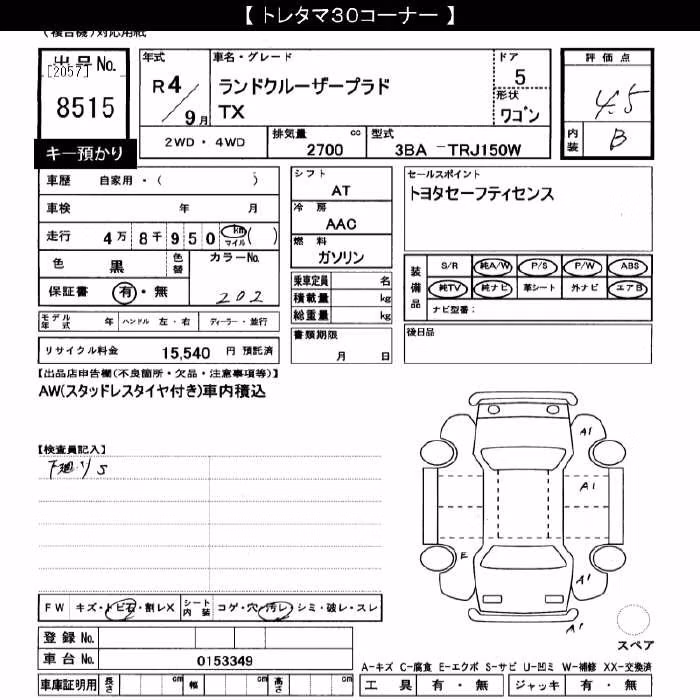 【 トレタマ30コーナー 】
(複合機)対応用紙
出品No.
[2057]
8515
キー預かり
年式
R4/9月
車名・グレード
ランドクルーザープラド
TX
ドア
5
形状
ワゴン
2WD・4WD
排気量 cc
2700
型式
3BA -TRJ150W
評価点
4.5
内装
B
車歴 自家用・( )
車検 年 月
走行 4万 8千 950 km マイル ( )
色 黒 色替
カラーNo.
202
保証書 有・無
モデル年式 年 ハンドル 左・右 ディーラー・並行
リサイクル料金 15,540 円 預託済
シフト
AT
冷房
AAC
燃料
ガソリン
乗車定員 名
積載量 kg
総重量 kg
書類期限
月 日
セールスポイント
トヨタセーフティセンス
装備品
S/R 純A/W P/S P/W ABS
純TV 純ナビ 革シート 外ナビ エアB
ナビ型番:
後日品
【出品店申告欄(不良箇所・欠品・注意事項等)】
AW(スタッドレスタイヤ付き)車内積込
【検査員記入】
下廻りS
FW キズ・トビ石・割レX
シート内装 コゲ・穴・汚レ・シミ・破レ・スレ
登録No.
車台No. 0153349
車庫証明用 長さ cm 幅 cm 高さ cm
A1
A1
E
A1
A1
スペア
A-キズ C-腐食 E-エクボ S-サビ U-凹ミ W-補修 XX-交換済
工具 有・無 ジャッキ 有・無